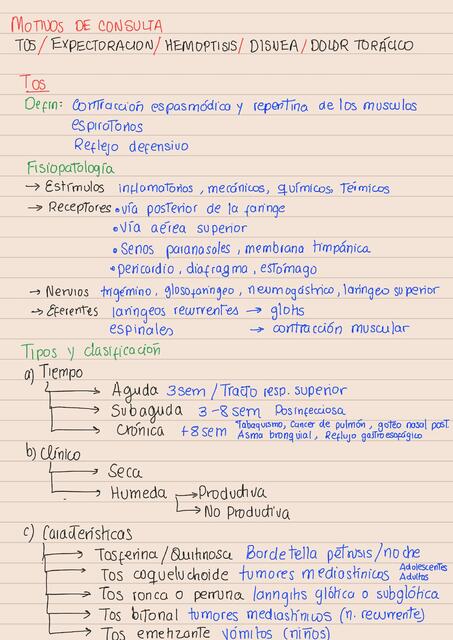 MOTIVOS DE CONSULTA
TOS / EXPECTORACION / HEMOPTISIS / DISNEA / DOLOR TORÁCICO
Tos
Defin: Contracción espasmódica y repentina de los musculos
espiratorios
Reflejo defensivo
Fisiopatología
→ Estímulos inflamatorios, mecánicos, químicos, Térmicos
→ Receptores • vía posterior de la faringe
• vía aérea superior
• Senos paranasales, membrana timpánica
• pericardio, diafragma, estómago
→ Nervios trigémino, glosofaríngeo, neumogástrico, laringeo superior
→ Eferentes laringeos recurrentes → glotis
espinales → contracción muscular
Tipos y clasificación
a) Tiempo
Aguda 3 sem / Tracto resp. superior
Subaguda 3-8 sem Posinfecciosa
Crónica +8 sem Tabaquismo, Cancer de pulmón, goteo nasal post.
Asma bronquial, Reflujo gastroesofágico
b) Clínico
Seca
Humeda → Productiva
→ No Productiva
c) Características
Tosferina / Quintosa Bordetella petrusis / noche
Tos coqueluchoide tumores mediastínicos Adolescentes Adultos
Tos ronca o perruna laringitis glótica o subglótica
Tos bitonal tumores mediastínicos (n. recurrente)
Tos emetizante vómitos (niños)